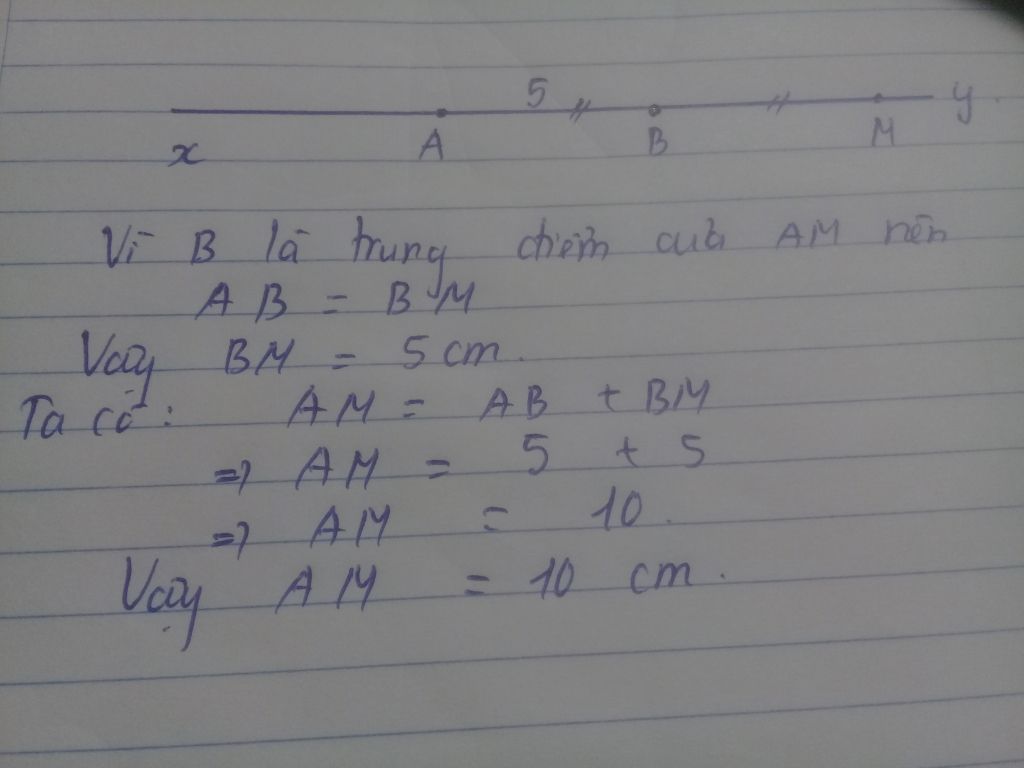 5
x A B M y
Vì B là trung điểm của AM nên
AB = BM
Vậy BM = 5 cm.
Ta có: AM = AB + BM
=> AM = 5 + 5
=> AM = 10.
Vậy AM = 10 cm.